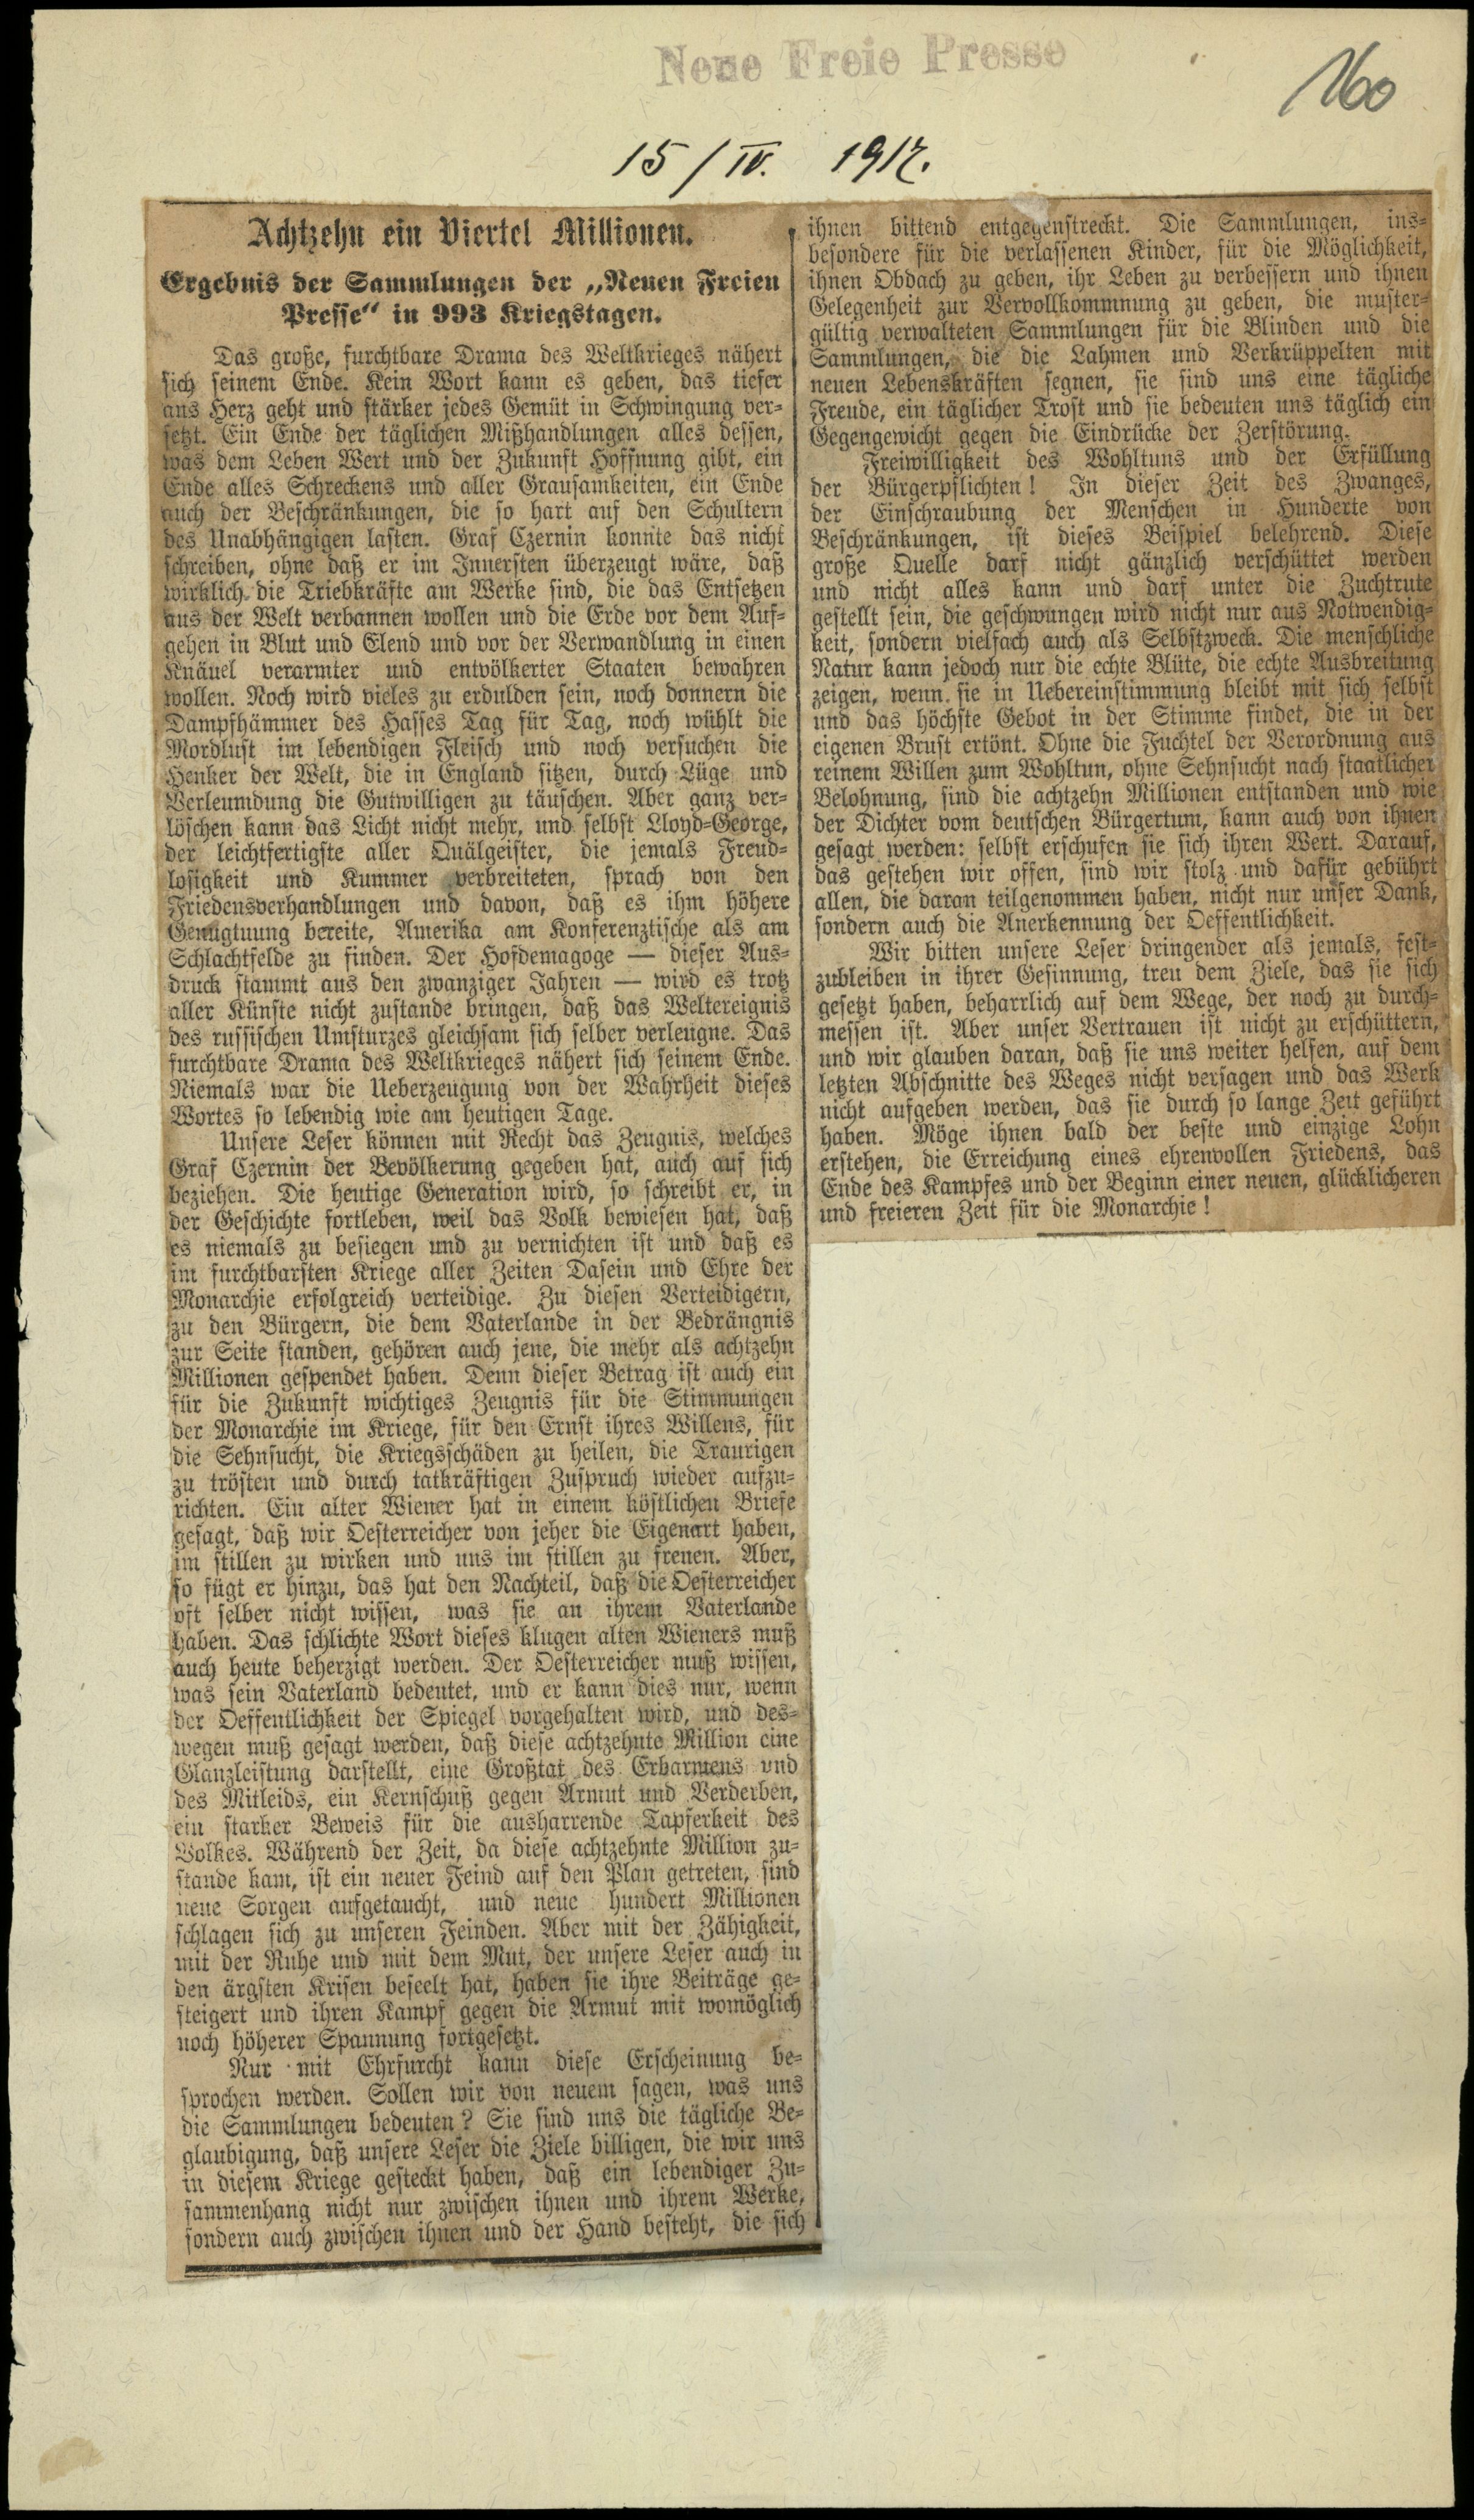 Neue Freie Presse
160
15/IV. 1917.
Achtzehn ein Viertel Millionen.
Ergebnis der Sammlungen der „Neuen Freien
Presse“ in 993 Kriegstagen.
Das große, furchtbare Drama des Weltkrieges nähert
sich seinem Ende. Kein Wort kann es geben, das tiefer
ans Herz geht und stärker jedes Gemüt in Schwingung ver-
setzt. Ein Ende der täglichen Mißhandlungen alles dessen,
was dem Leben Wert und der Zukunft Hoffnung gibt, ein
Ende alles Schreckens und aller Grausamkeiten, ein Ende
auch der Beschränkungen, die so hart auf den Schultern
des Unabhängigen lasten. Graf Czernin konnte das nicht
schreiben, ohne daß er im Innersten überzeugt wäre, daß
wirklich die Triebkräfte am Werke sind, die das Entsetzen
aus der Welt verbannen wollen und die Erde vor dem Auf-
gehen in Blut und Elend und vor der Verwandlung in einen
Knäuel verarmter und entvölkerter Staaten bewahren
wollen. Noch wird vieles zu erdulden sein, noch donnern die
Dampfhämmer des Hasses Tag für Tag, noch wühlt die
Mordlust im lebendigen Fleisch und noch versuchen die
Henker der Welt, die in England sitzen, durch Lüge und
Verleumdung die Gutwilligen zu täuschen. Aber ganz ver-
löschen kann das Licht nicht mehr, und selbst Lloyd-George,
der leichtfertigste aller Quälgeister, die jemals Freud-
losigkeit und Kummer verbreiteten, sprach von den
Friedensverhandlungen und davon, daß es ihm höhere
Genugtuung bereite, Amerika am Konferenztische als am
Schlachtfelde zu finden. Der Hofdemagoge — dieser Aus-
druck stammt aus den zwanziger Jahren — wird es trotz
aller Künste nicht zustande bringen, daß das Weltereignis
des russischen Umsturzes gleichsam sich selber verleugne. Das
furchtbare Drama des Weltkrieges nähert sich seinem Ende.
Niemals war die Ueberzeugung von der Wahrheit dieses
Wortes so lebendig wie am heutigen Tage.
Unsere Leser können mit Recht das Zeugnis, welches
Graf Czernin der Bevölkerung gegeben hat, auch auf sich
beziehen. Die heutige Generation wird, so schreibt er, in
der Geschichte fortleben, weil das Volk bewiesen hat, daß
es niemals zu besiegen und zu vernichten ist und daß es
im furchtbarsten Kriege aller Zeiten Dasein und Ehre der
Monarchie erfolgreich verteidige. Zu diesen Verteidigern,
zu den Bürgern, die dem Vaterlande in der Bedrängnis
zur Seite standen, gehören auch jene, die mehr als achtzehn
Millionen gespendet haben. Denn dieser Betrag ist auch ein
für die Zukunft wichtiges Zeugnis für die Stimmungen
der Monarchie im Kriege, für den Ernst ihres Willens, für
die Sehnsucht, die Kriegsschäden zu heilen, die Traurigen
zu trösten und durch tatkräftigen Zuspruch wieder aufzu-
richten. Ein alter Wiener hat in einem köstlichen Briefe
gesagt, daß wir Oesterreicher von jeher die Eigenart haben,
im stillen zu wirken und uns im stillen zu freuen. Aber,
so fügt er hinzu, das hat den Nachteil, daß die Oesterreicher
oft selber nicht wissen, was sie an ihrem Vaterlande
haben. Das schlichte Wort dieses klugen alten Wieners muß
auch heute beherzigt werden. Der Oesterreicher muß wissen,
was sein Vaterland bedeutet, und er kann dies nur, wenn
der Oeffentlichkeit der Spiegel vorgehalten wird, und des-
wegen muß gesagt werden, daß diese achtzehnte Million eine
Glanzleistung darstellt, eine Großtat des Erbarmens und
des Mitleids, ein Kernschuß gegen Armut und Verderben,
ein starker Beweis für die ausharrende Tapferkeit des
Volkes. Während der Zeit, da diese achtzehnte Million zu-
stande kam, ist ein neuer Feind auf den Plan getreten, sind
neue Sorgen aufgetaucht, und neue hundert Millionen
schlagen sich zu unseren Feinden. Aber mit der Zähigkeit,
mit der Ruhe und mit dem Mut, der unsere Leser auch in
den ärgsten Krisen beseelt hat, haben sie ihre Beiträge ge-
steigert und ihren Kampf gegen die Armut mit womöglich
noch höherer Spannung fortgesetzt.
Nur mit Ehrfurcht kann diese Erscheinung be-
sprochen werden. Sollen wir von neuem sagen, was uns
die Sammlungen bedeuten? Sie sind uns die tägliche Be-
glaubigung, daß unsere Leser die Ziele billigen, die wir uns
in diesem Kriege gesteckt haben, daß ein lebendiger Zu-
sammenhang nicht nur zwischen ihnen und ihrem Werke,
sondern auch zwischen ihnen und der Hand besteht, die sich
ihnen bittend entgegenstreckt. Die Sammlungen, ins-
besondere für die verlassenen Kinder, für die Möglichkeit,
ihnen Obdach zu geben, ihr Leben zu verbessern und ihnen
Gelegenheit zur Vervollkommnung zu geben, die muster-
gültig verwalteten Sammlungen für die Blinden und die
Sammlungen, die die Lahmen und Verkrüppelten mit
neuen Lebenskräften segnen, sie sind uns eine tägliche
Freude, ein täglicher Trost und sie bedeuten uns täglich ein
Gegengewicht gegen die Eindrücke der Zerstörung.
Freiwilligkeit des Wohltuns und der Erfüllung
der Bürgerpflichten! In dieser Zeit des Zwanges,
der Einschraubung der Menschen in Hunderte von
Beschränkungen, ist dieses Beispiel belehrend. Diese
große Quelle darf nicht gänzlich verschüttet werden
und nicht alles kann und darf unter die Zuchtrute
gestellt sein, die geschwungen wird nicht nur aus Notwendig-
keit, sondern vielfach auch als Selbstzweck. Die menschliche
Natur kann jedoch nur die echte Blüte, die echte Ausbreitung
zeigen, wenn sie in Uebereinstimmung bleibt mit sich selbst
und das höchste Gebot in der Stimme findet, die in der
eigenen Brust ertönt. Ohne die Fuchtel der Verordnung aus
reinem Willen zum Wohltun, ohne Sehnsucht nach staatlicher
Belohnung, sind die achtzehn Millionen entstanden und wie
der Dichter vom deutschen Bürgertum, kann auch von ihnen
gesagt werden: selbst erschufen sie sich ihren Wert. Darauf,
das gestehen wir offen, sind wir stolz und dafür gebührt
allen, die daran teilgenommen haben, nicht nur unser Dank,
sondern auch die Anerkennung der Oeffentlichkeit.
Wir bitten unsere Leser dringender als jemals, fest-
zubleiben in ihrer Gesinnung, treu dem Ziele, das sie sich
gesetzt haben, beharrlich auf dem Wege, der noch zu durch-
messen ist. Aber unser Vertrauen ist nicht zu erschüttern,
und wir glauben daran, daß sie uns weiter helfen, auf dem
letzten Abschnitte des Weges nicht versagen und das Werk
nicht aufgeben werden, das sie durch so lange Zeit geführt
haben. Möge ihnen bald der beste und einzige Lohn
erstehen, die Erreichung eines ehrenvollen Friedens, das
Ende des Kampfes und der Beginn einer neuen, glücklicheren
und freieren Zeit für die Monarchie!